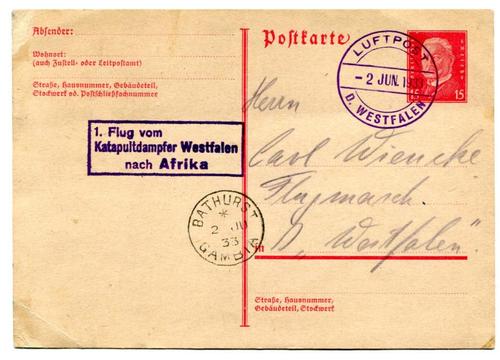 Absender:
Wohnort:
(auch Zustell- oder Leitpostamt)
Straße, Hausnummer, Gebäudeteil,
Stockwerk od. Postschließfachnummer
Postkarte
LUFTPOST
- 2 JUN. 1933
D. WESTFALEN
15
1. Flug vom
Katapultdampfer Westfalen
nach Afrika
BATHURST
*
2 JU
33
GAMBIA
Herrn
Carl Wiencke
Flugmasch.
D „Westfalen".
in
Straße, Hausnummer,
Gebäudeteil, Stockwerk